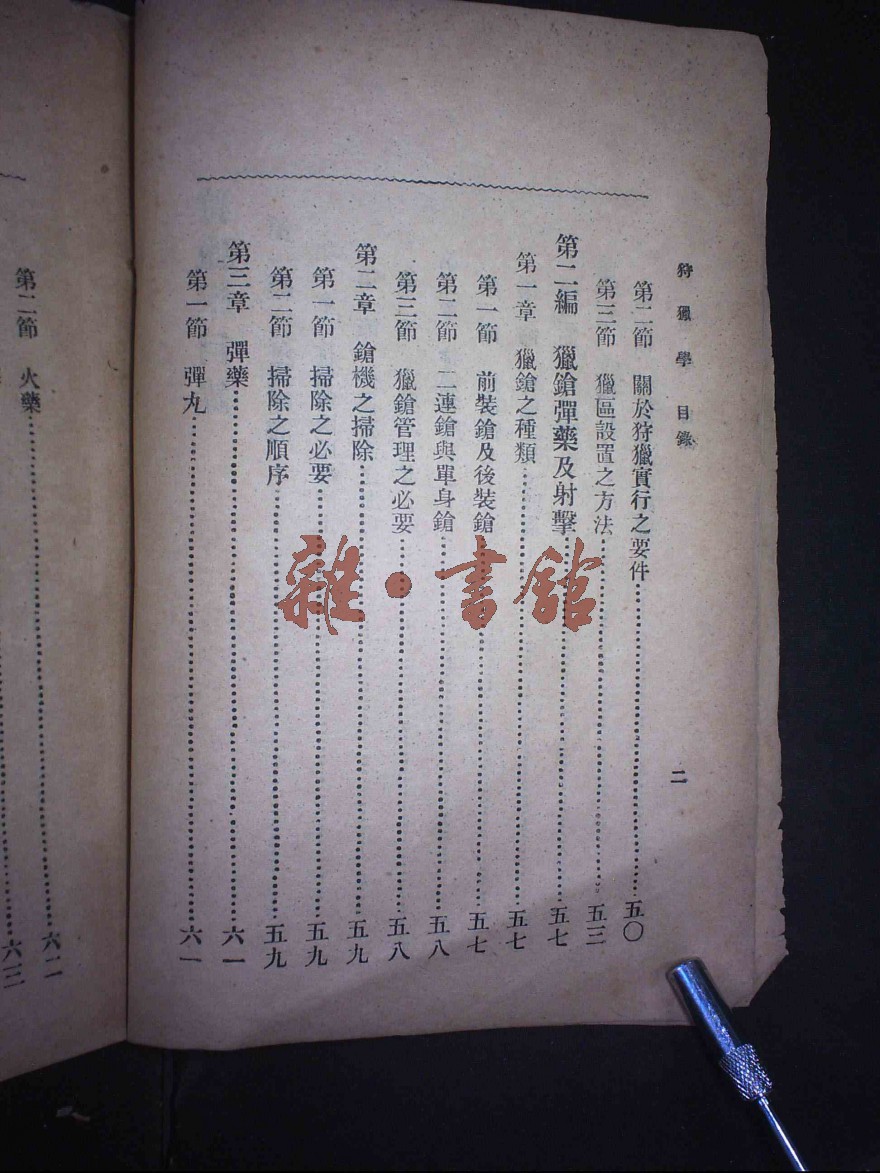 狩獵學 目錄
二
第二節 關於狩獵實行之要件 五〇
第三節 獵區設置之方法 五三
第二編 獵鎗彈藥及射擊 五七
第一章 獵鎗之種類 五七
第一節 前裝鎗及後裝鎗 五七
第二節 二連鎗與單身鎗 五八
第三節 獵鎗管理之必要 五八
第二章 鎗機之掃除 五九
第一節 掃除之必要 五九
第二節 掃除之順序 五九
第三章 彈藥 六一
第一節 彈丸 六一
第二節 火藥 六二
六三
雜·書館